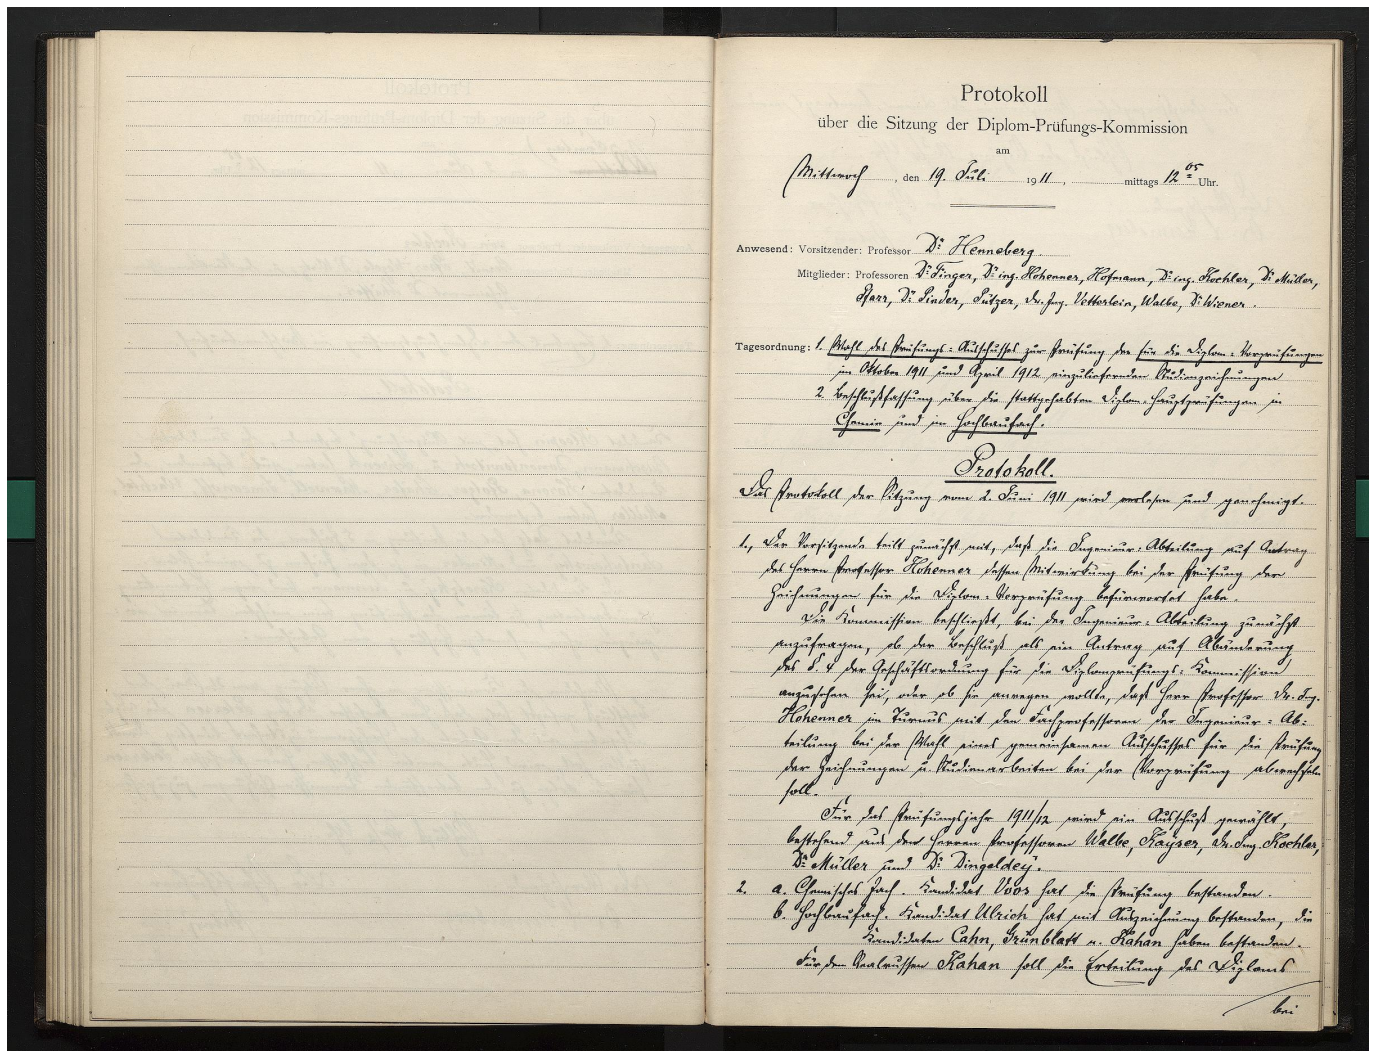 Protokoll
über die Sitzung der Diplom-Prüfungs-Kommission
am
Mittwoch, den 19. Juli 1911, mittags 12 05 Uhr.
Anwesend: Vorsitzender: Professor Dr. Henneberg.
Mitglieder: Professoren Dr. Finger, Dr. ing. Hohenner, Hofmann, Dr. ing. Koehler, Dr. Müller,
Pfarr, Dr. Pinder, Pützer, Dr. Ing. Vetterlein, Walbe, Dr. Wiener.
Tagesordnung: 1. Wahl des Prüfungs-Ausschusses zur Prüfung der für die Diplom-Vorprüfungen
im Oktober 1911 und April 1912 einzuliefernden Studienzeichnungen
2. Beschlußfassung über die stattgehabten Diplom-Hauptprüfungen in
Chemie und im Hochbaufach.
Protokoll.
Das Protokoll der Sitzung vom 2. Juni 1911 wird verlesen und genehmigt.
1., Der Vorsitzende teilt zunächst mit, daß die Ingenieur-Abteilung auf Antrag
des Herrn Professor Hohenner dessen Mitwirkung bei der Prüfung der
Zeichnungen für die Diplom-Vorprüfung befürwortet habe.
Die Kommission beschließt, bei der Ingenieur-Abteilung zunächst
anzufragen, ob der Beschluß als ein Antrag auf Abänderung
des §. 4 der Geschäftsordnung für die Diplomprüfungs-Kommission
anzusehen sei, oder ob sie anregen wollte, daß Herr Professor Dr. Ing.
Hohenner im Turnus mit den Fachprofessoren der Ingenieur-Ab-
teilung bei der Wahl eines gemeinsamen Ausschusses für die Prüfung
der Zeichnungen u. Studienarbeiten bei der Vorprüfung abwechseln
soll.
Für das Prüfungsjahr 1911/12 wird ein Ausschuß gewählt,
bestehend aus den Herren Professoren Walbe, Kayser, Dr. Ing. Koehler,
Dr. Müller und Dr. Dingeldey.
2. a. Chemisches Fach. Kandidat Voos hat die Prüfung bestanden.
b. Hochbaufach. Kandidat Ulrich hat mit Auszeichnung bestanden, die
Kandidaten Cahn, Grünblatt u. Kahan haben bestanden.
Für den Realrussen Kahan soll die Erteilung des Diploms
bei